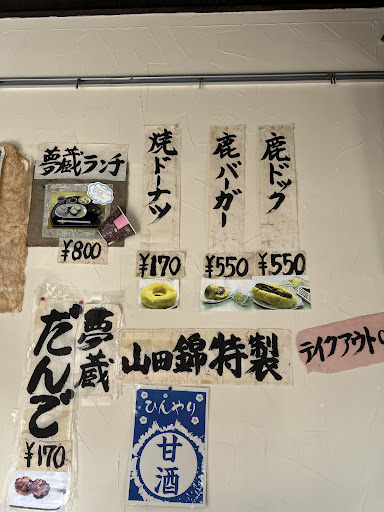 夢蔵ランチ
¥800
焼ドーナツ
¥170
鹿バーガー
¥550
鹿ドック
¥550
夢蔵
だんご
¥170
山田錦特製
テイクアウト
ひんやり
甘酒